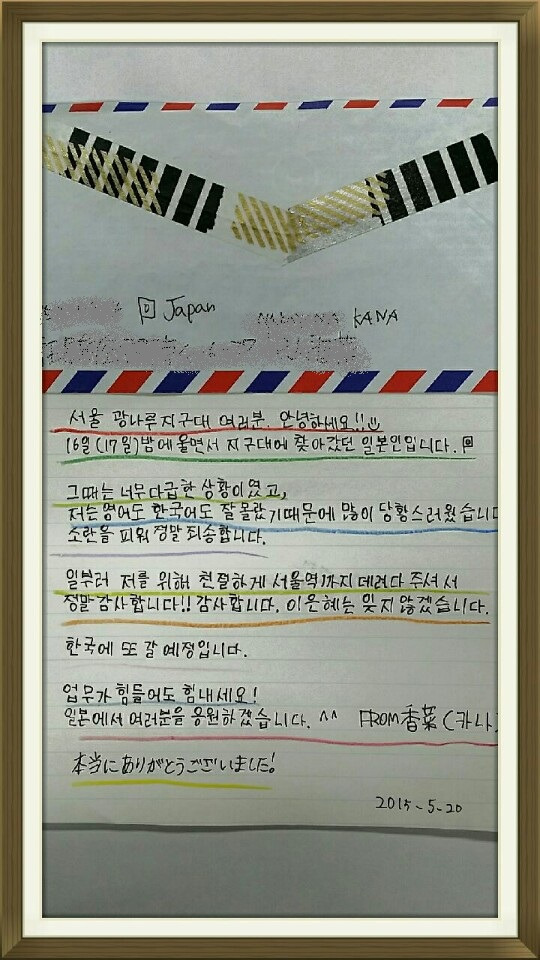 Japan
KANA
서울 광나루지구대 여러분, 안녕하세요!!
16일(17일)밤에 울면서 지구대에 찾아갔던 일본인입니다.
그때는 너무 다급한 상황이였고,
저는 영어도 한국어도 잘 몰랐기 때문에 많이 당황스러웠습니다
소란을 피워 정말 죄송합니다.
일부러 저를 위해 친절하게 서울역까지 데려다 주셔서
정말 감사합니다!! 감사합니다. 이 은혜는 잊지 않겠습니다.
한국에 또 갈 예정입니다.
업무가 힘들어도 힘내세요!
일본에서 여러분을 응원하겠습니다. ^^ FROM 香菜 (카나)
本当にありがとうございました!
2015-5-20